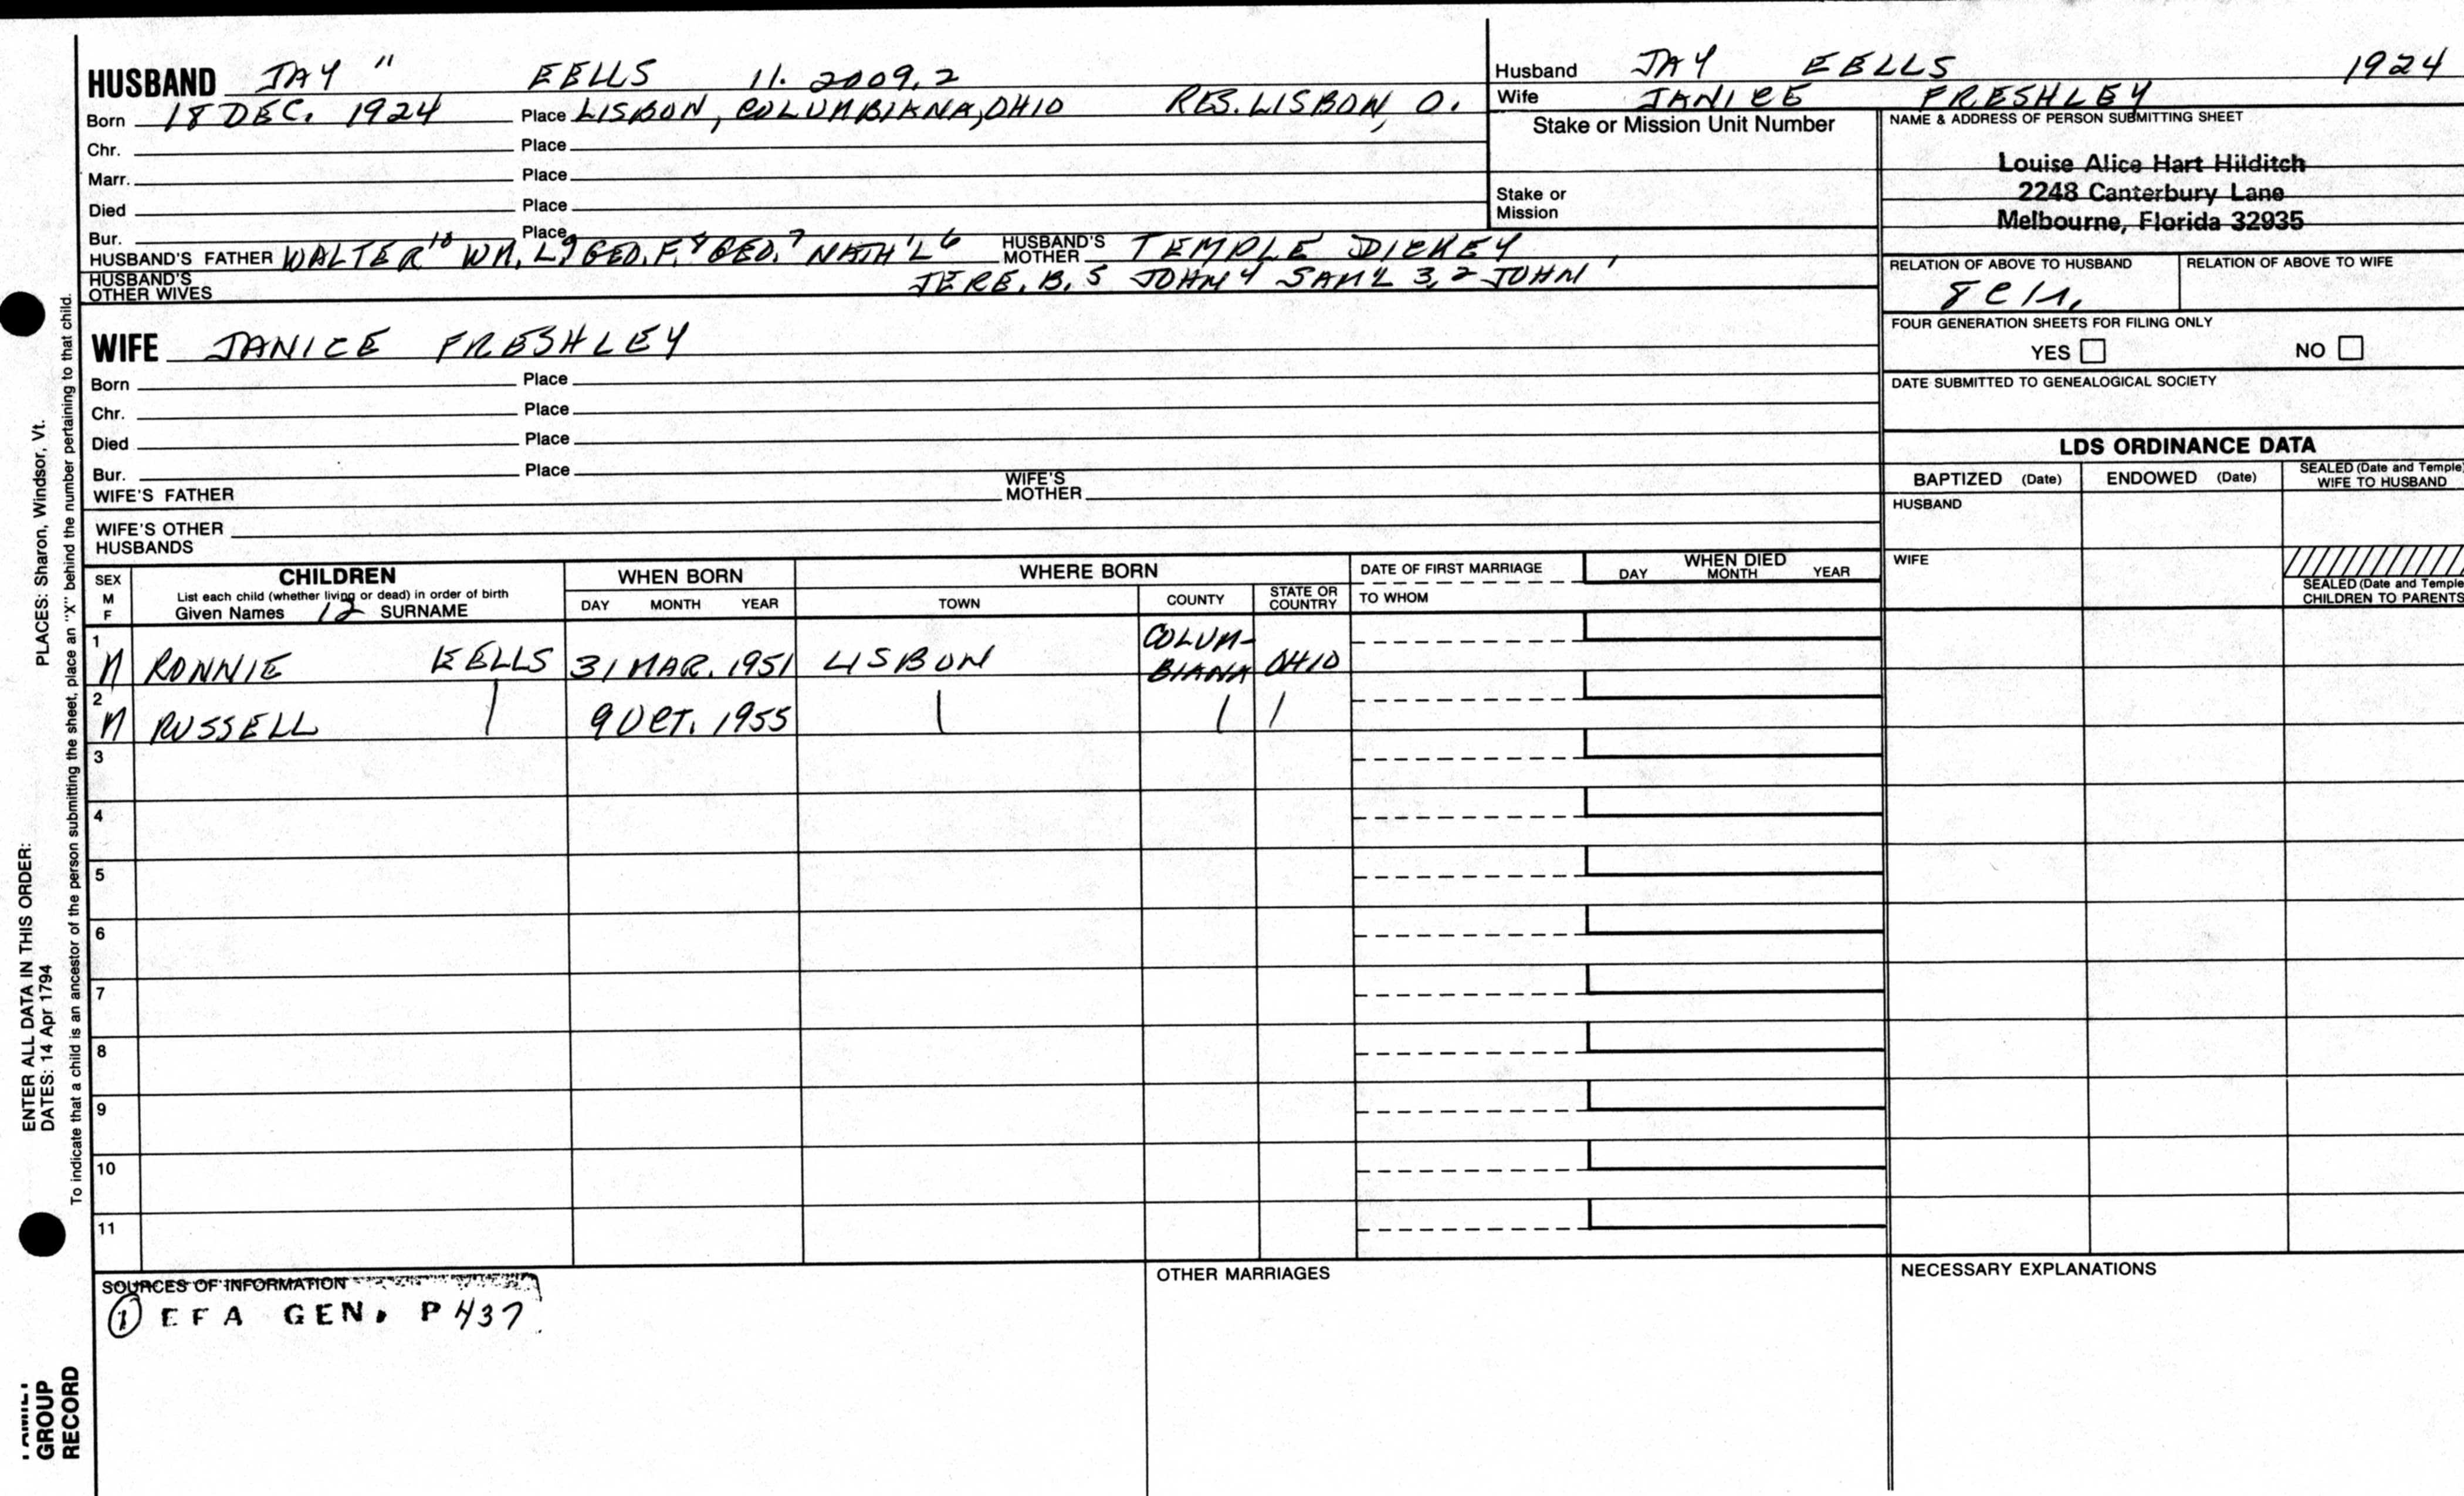 HUSBAND JAY 11 EELLS 11. 2009.2
Born 18 DEC. 1924 Place LISBON, COLUMBIANA, OHIO RES. LISBON, O.
Chr. Place
Marr. Place
Died Place
Bur. Place
HUSBAND'S FATHER WALTER 10 WM. L. 9 GEO. F. 8 GEO. 7 NATH'L 6 HUSBAND'S MOTHER TEMPLE DICKEY
HUSBAND'S OTHER WIVES JERE. B. 5 JOHN 4 SAM'L 3, 2 JOHN 1
Husband JAY EELLS 1924
Wife JANICE FRESHLEY
Stake or Mission Unit Number
Stake or
Mission
NAME & ADDRESS OF PERSON SUBMITTING SHEET
Louise Alice Hart Hilditch
2248 Canterbury Lane
Melbourne, Florida 32935
RELATION OF ABOVE TO HUSBAND RELATION OF ABOVE TO WIFE
FOUR GENERATION SHEETS FOR FILING ONLY
YES NO
DATE SUBMITTED TO GENEALOGICAL SOCIETY
WIFE JANICE FRESHLEY
Born Place
Chr. Place
Died Place
Bur. Place
WIFE'S FATHER WIFE'S MOTHER
WIFE'S OTHER
HUSBANDS
LDS ORDINANCE DATA
BAPTIZED (Date) ENDOWED (Date) SEALED (Date and Temple) WIFE TO HUSBAND
HUSBAND
WIFE
SEALED (Date and Temple
CHILDREN TO PARENTS
SEX
M
F
CHILDREN
List each child (whether living or dead) in order of birth
Given Names 12 SURNAME
WHEN BORN
DAY MONTH YEAR
WHERE BORN
TOWN COUNTY STATE OR COUNTRY
DATE OF FIRST MARRIAGE
TO WHOM
WHEN DIED
DAY MONTH YEAR
1 M RONNIE EELLS 31 MAR. 1951 LISBON COLUM-BIANA OHIO
2 M RUSSELL | 9 OCT. 1955 | | |
3
4
5
6
7
8
9
10
11
SOURCES OF INFORMATION
① EFA GEN. P437
OTHER MARRIAGES
NECESSARY EXPLANATIONS
ENTER ALL DATA IN THIS ORDER:
DATES: 14 Apr 1794 PLACES: Sharon, Windsor, Vt.
To indicate that a child is an ancestor of the person submitting the sheet, place an "X" behind the number pertaining to that child.
GROUP
RECORD